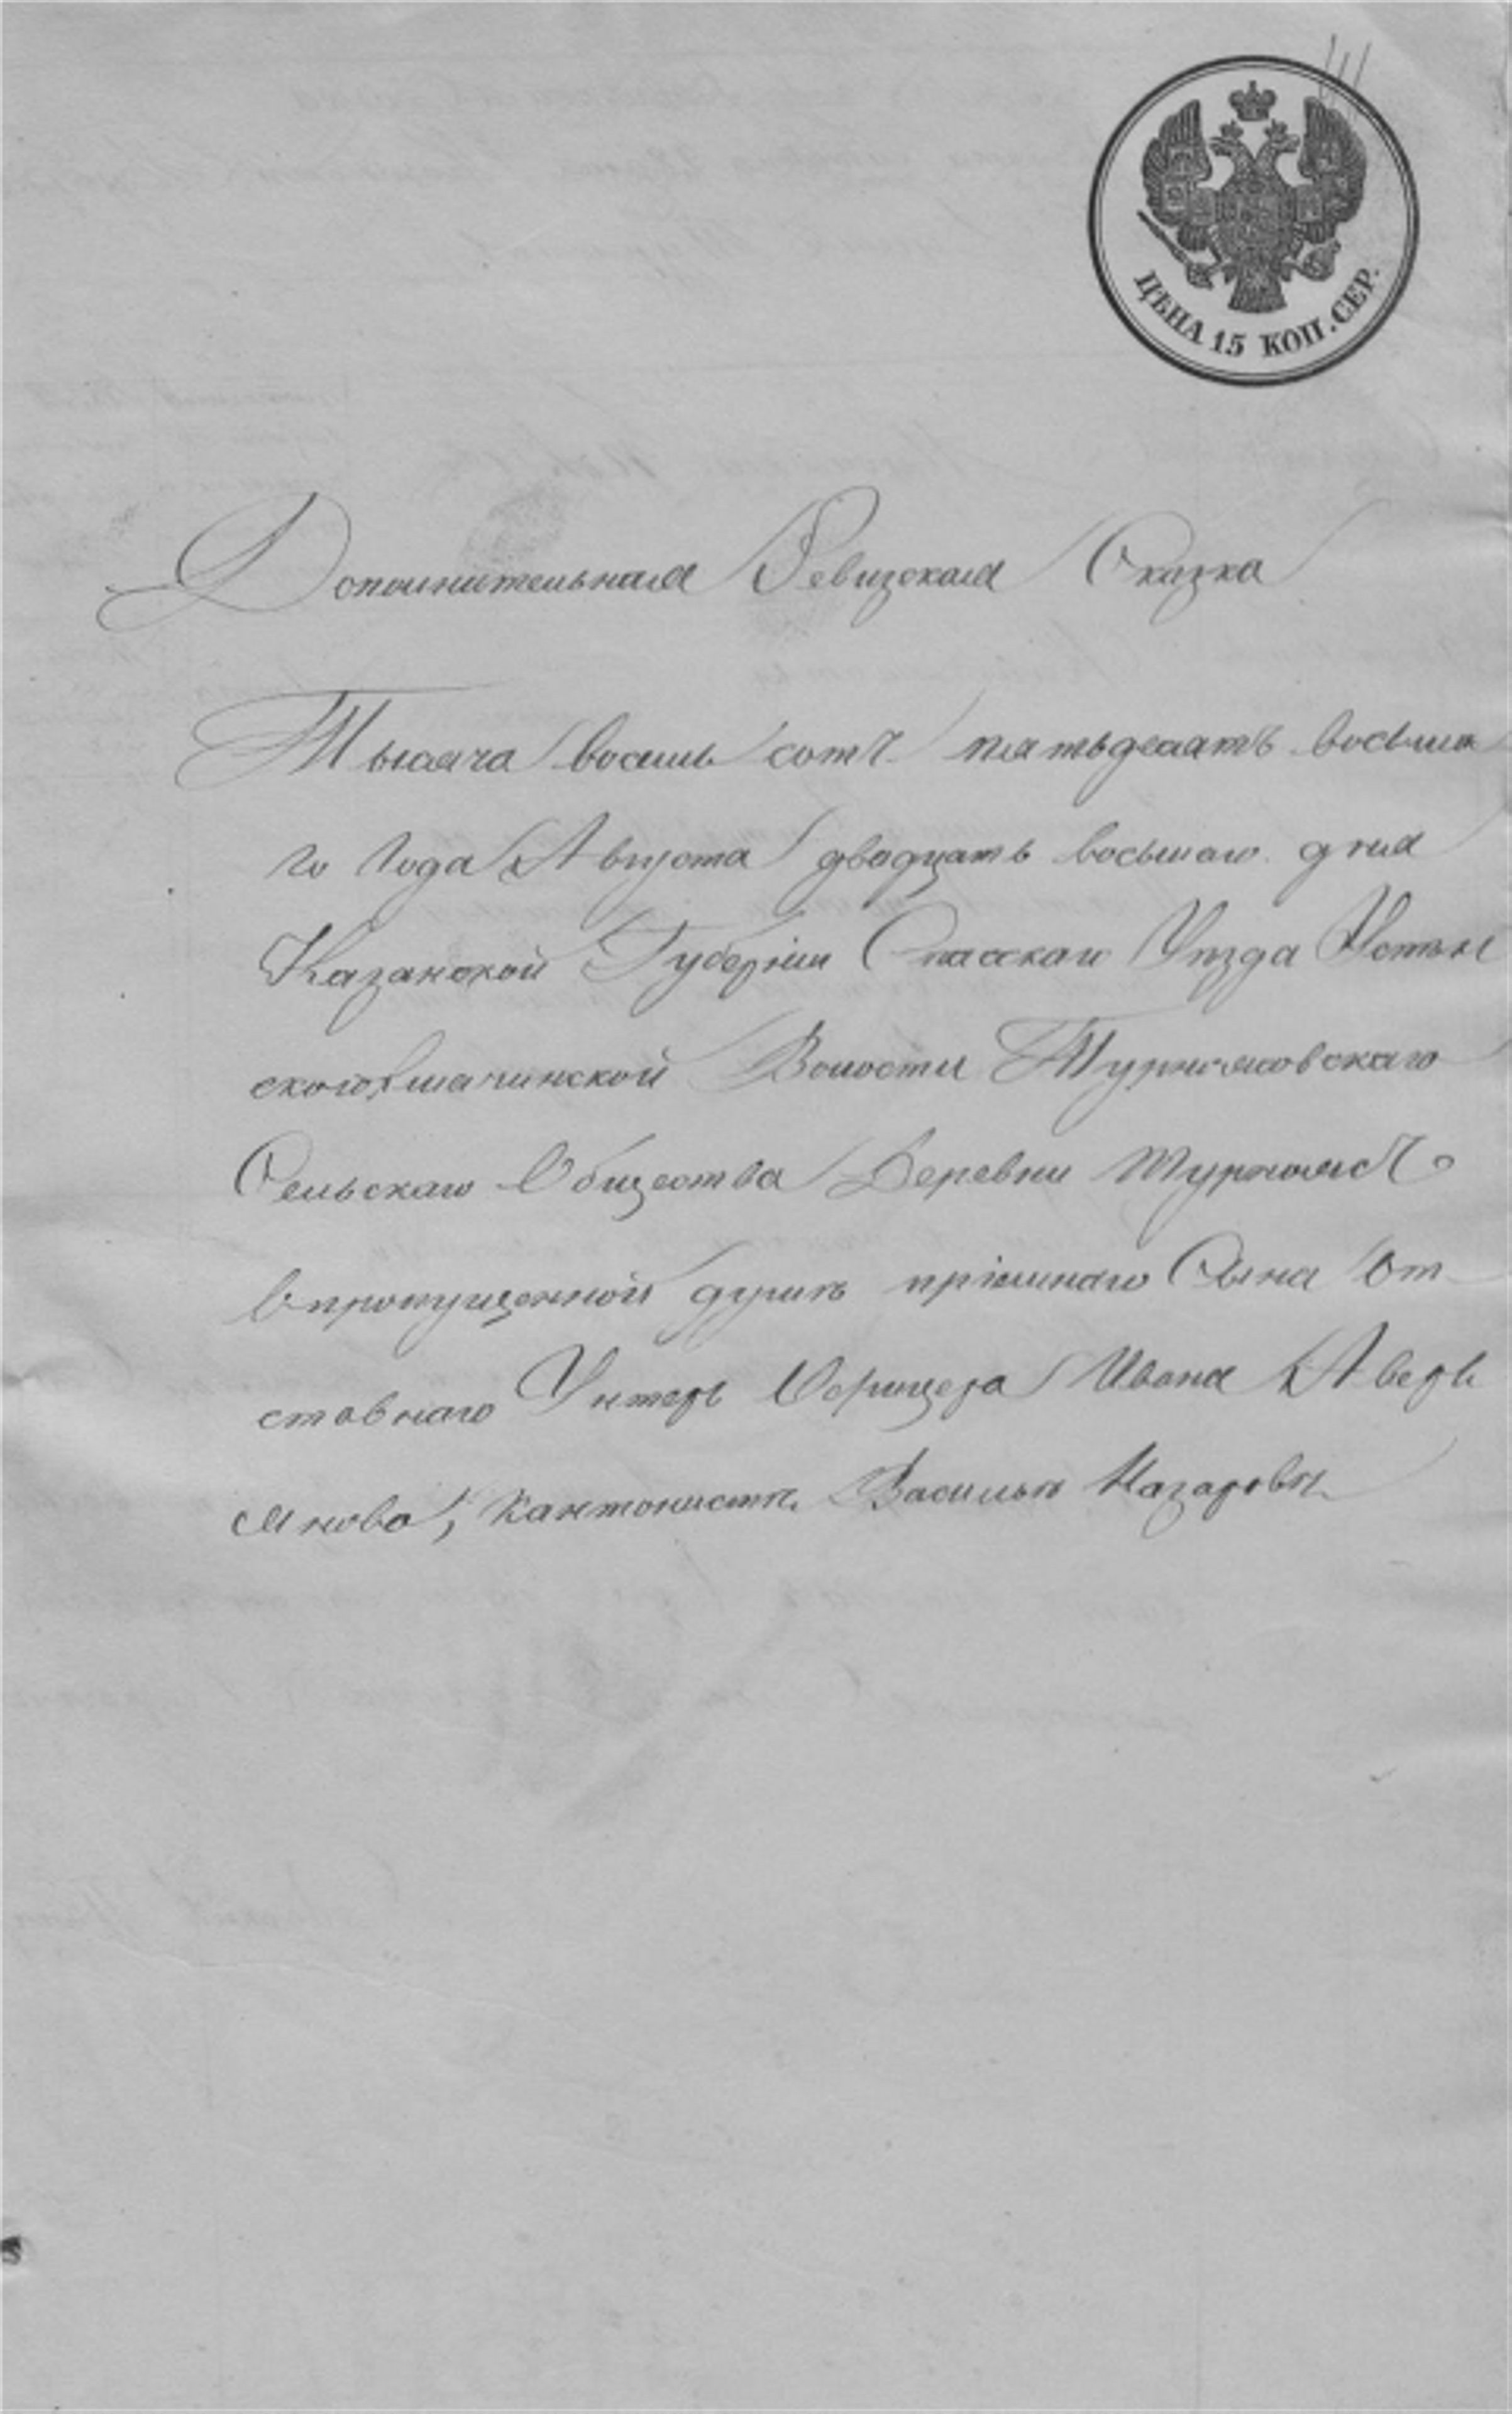 ЦѢНА 15 КОП. СЕР.
Дополнительная Ревизская Сказка
Тысяча восемь сотъ пятьдесятъ восьма
го Года Августа двадцать восьмаго дня
Казанской Губерніи Спасскаго Уѣзда
Волости Турнясовскаго
Сельскаго Общества Деревни Турнясъ о
впропущенной душѣ пріемнаго Сына От
ставнаго Унтеръ Офицера Ивана Аверь
янова, кантонистѣ Васильѣ Назаровѣ